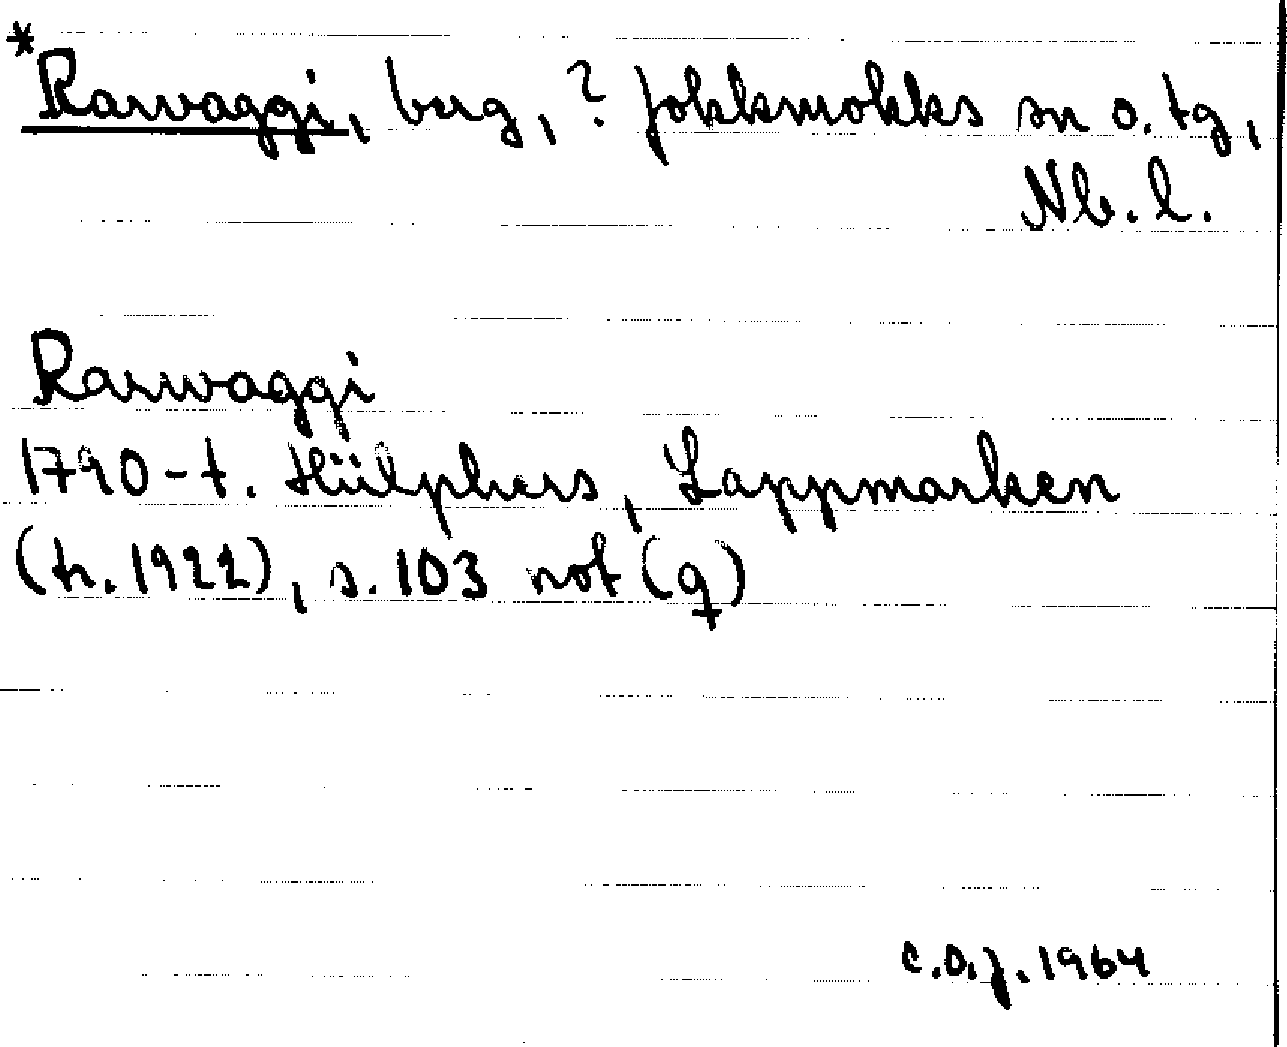 *Rarwaggi, berg, ? Jokkmokks sn o. tg,
Nb. l.
Rarwaggi
1790-t. Hülphers, Lappmarken
(tr. 1922), s. 103 not (q)
C.O.J. 1964